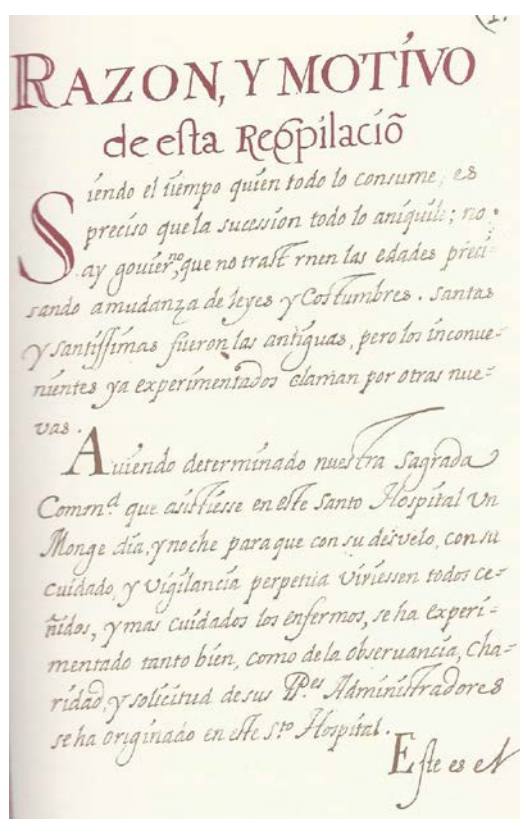 (1.
RAZON, Y MOTIVO
de esta Recopilaciõ
Siendo el tiempo quien todo lo consume, es
preciso que la sucession todo lo aniquile; no
ay gouierno, que no trastrnen las edades preci-
sando a mudanza de leyes y Costumbres. santas
y santissimas fueron las antiguas, pero los inconue-
nientes ya experimentados claman por otras nue-
vas.
Auiendo determinado nuestra Sagrada
Commd que asistiesse en este Santo Hospital Un
Monge dia, y noche para que con su desvelo, con su
cuidado, y vigilancia perpetua viviessen todos ce-
ñidos, y mas cuidados los enfermos, se ha experi-
mentado tanto bien, como de la obseruancia, Cha-
ridad, y solicitud de sus PP.es Administradores
se ha originado en este S.to Hospital.
Este es el